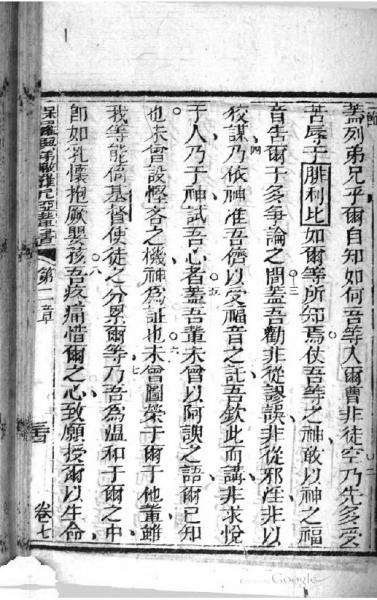 蓋列弟兄乎爾自知如何吾等入爾曹非徒空乃先多受
苦辱于腓利比如爾等所知焉仗吾等之神敢以神之福
音吿爾于多爭論之間蓋吾勸非從謬誤非從邪淫非以
狡謀乃依神准吾儕以受福音之託吾欽此而講非求悅
于人乃于神試吾心者蓋吾輩未曾以阿諛之語爾已知
也未曾設慳吝之機神為証也未曾圖榮于爾于他輩雖
我等能倚基督使徒之分累爾等乃吾為溫和于爾之中
卽如乳懷抱厥嬰孩吾疼痛惜爾之心致願授爾以生命
第二章
卷七
Google